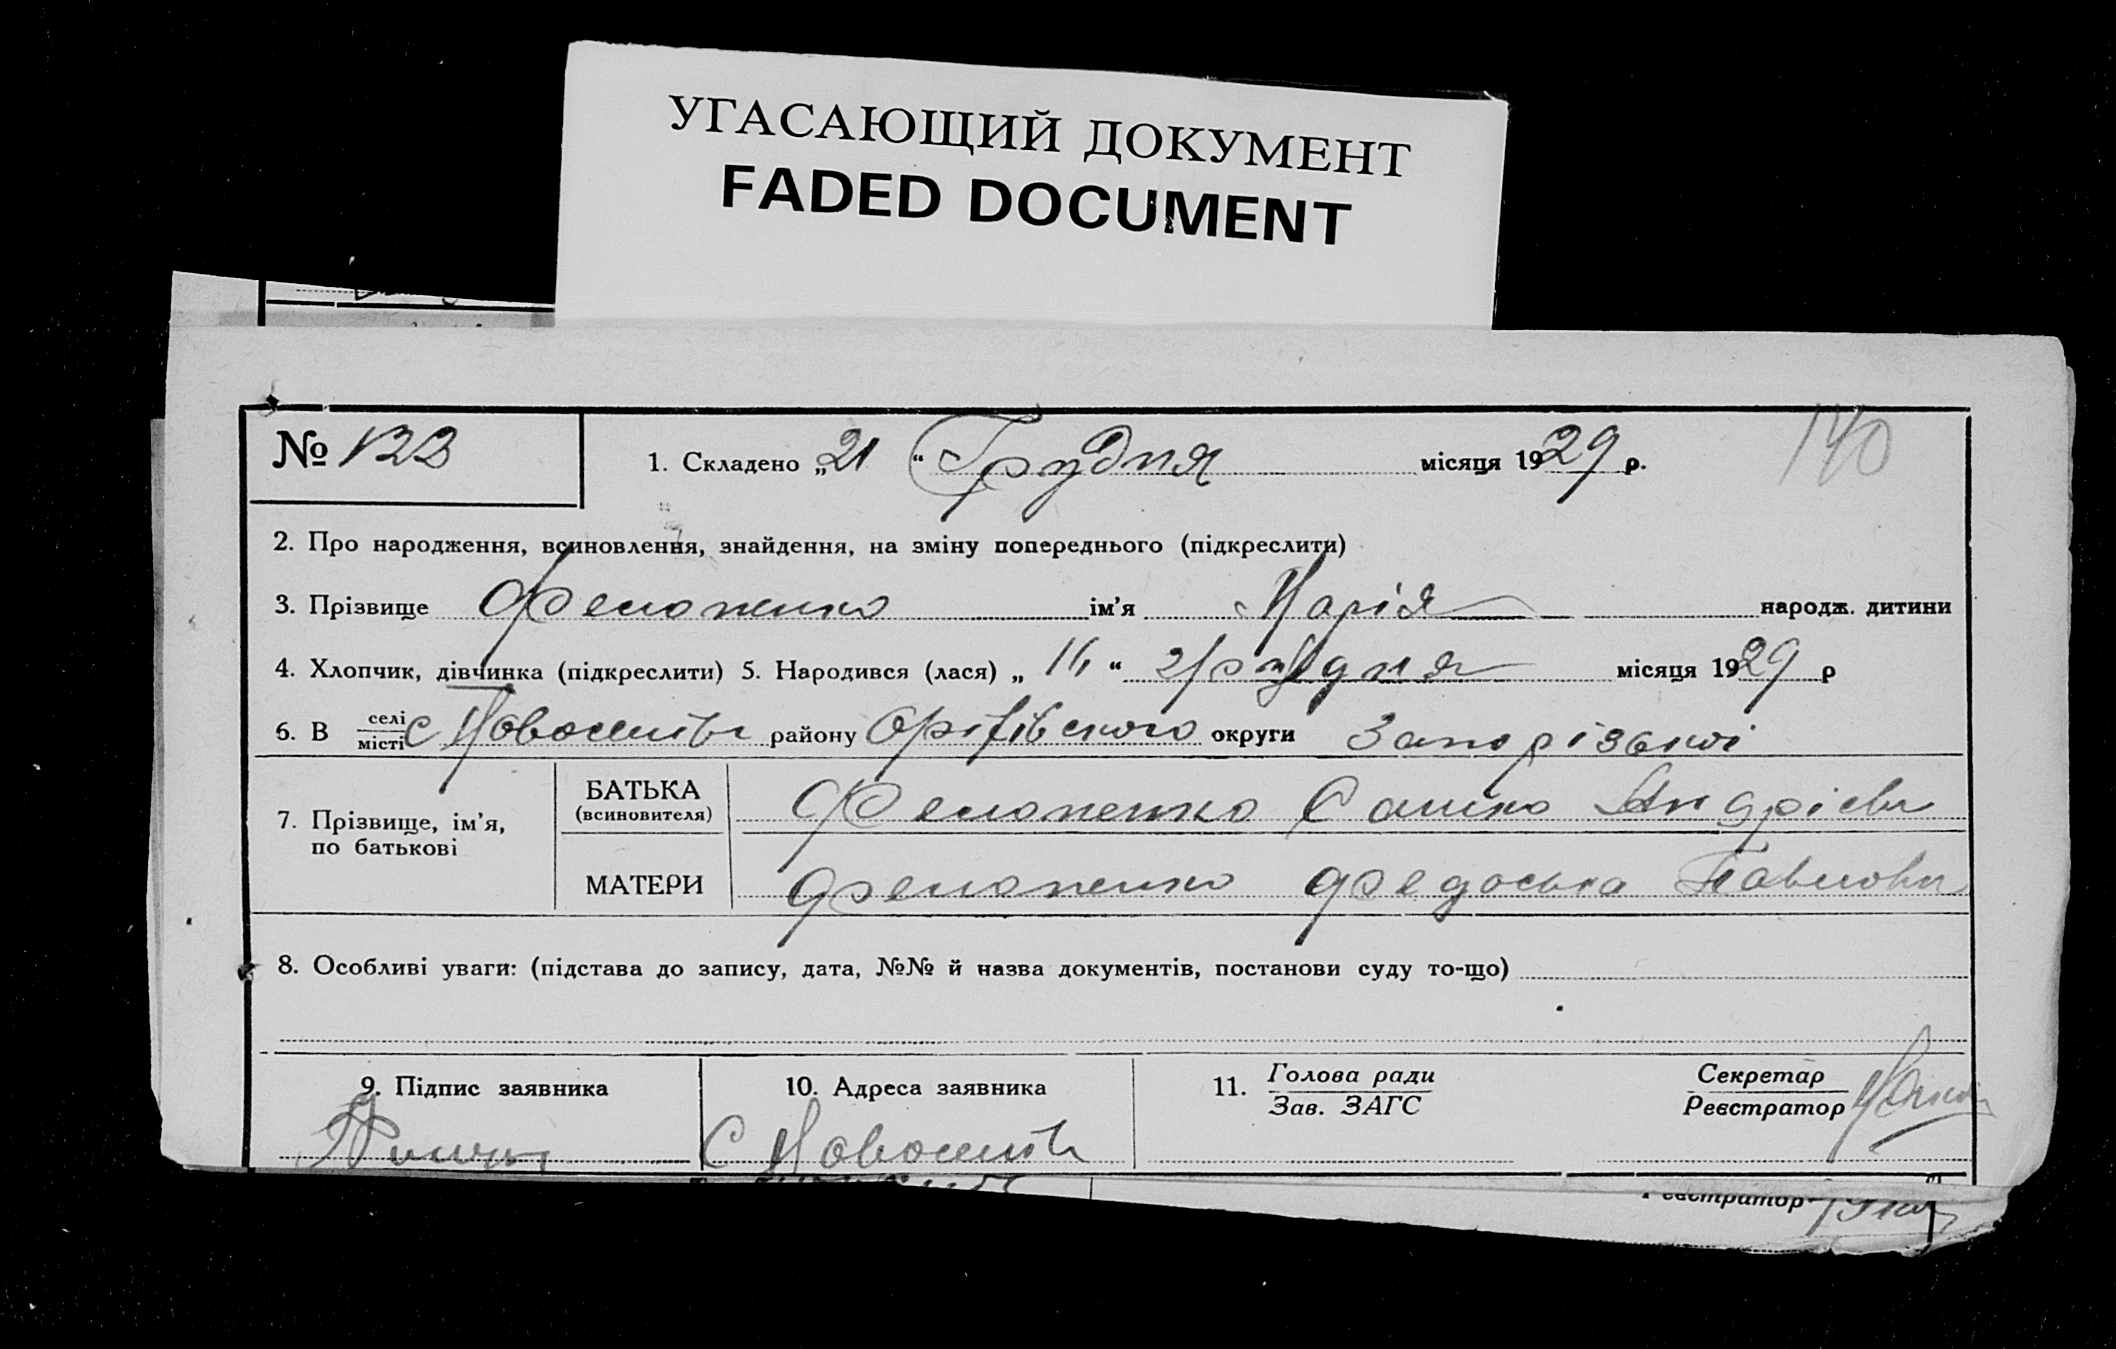 УГАСАЮЩИЙ ДОКУМЕНТ
FADED DOCUMENT
№ 122 1. Складено „21“ Грудня місяця 1929 р. 140
2. Про народження, всиновлення, знайдення, на зміну попереднього (підкреслити)
3. Прізвище ім'я Марія народж. дитини
4. Хлопчик, дівчинка (підкреслити) 5. Народився (лася) „ “ грудня місяця 1929 р
6. В селі/місті с районy Оріхівського округи Запорізької
7. Прізвище, ім'я, по батькові
БАТЬКА (всиновителя) Сашко Андрієв
МАТЕРИ Федоська Павловн
8. Особливі уваги: (підстава до запису, дата, №№ й назва документів, постанови суду то-що)
9. Підпис заявника 10. Адреса заявника 11. Голова ради/Зав. ЗАГС Секретар/Реєстратор
с
Реєстратор